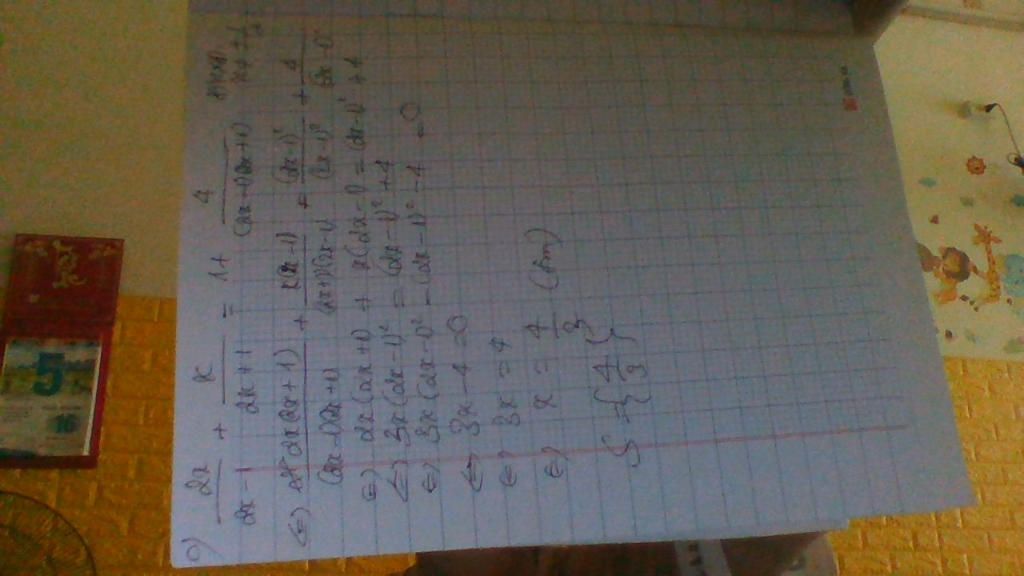 c) 2x/(2x-1) + x/(2x+1) = 1 + 4/((2x-1)(2x+1))
(=) 2x(2x+1)/((2x-1)(2x+1)) + x(2x-1)/((2x+1)(2x-1)) = (2x-1)²/(2x-1)² + 4/(2x-1)²
(=) 2x(2x+1) + x(2x-1) = (2x-1)² + 4
(=) 3x(2x-1)² = (2x-1)² + 4
(=) 3x(2x-1)² - (2x-1)² - 4 = 0
(=) 3x - 4 = 0
(=) 3x = 4
(=) x = 4/3 (tm)
S = {4/3}
5
16